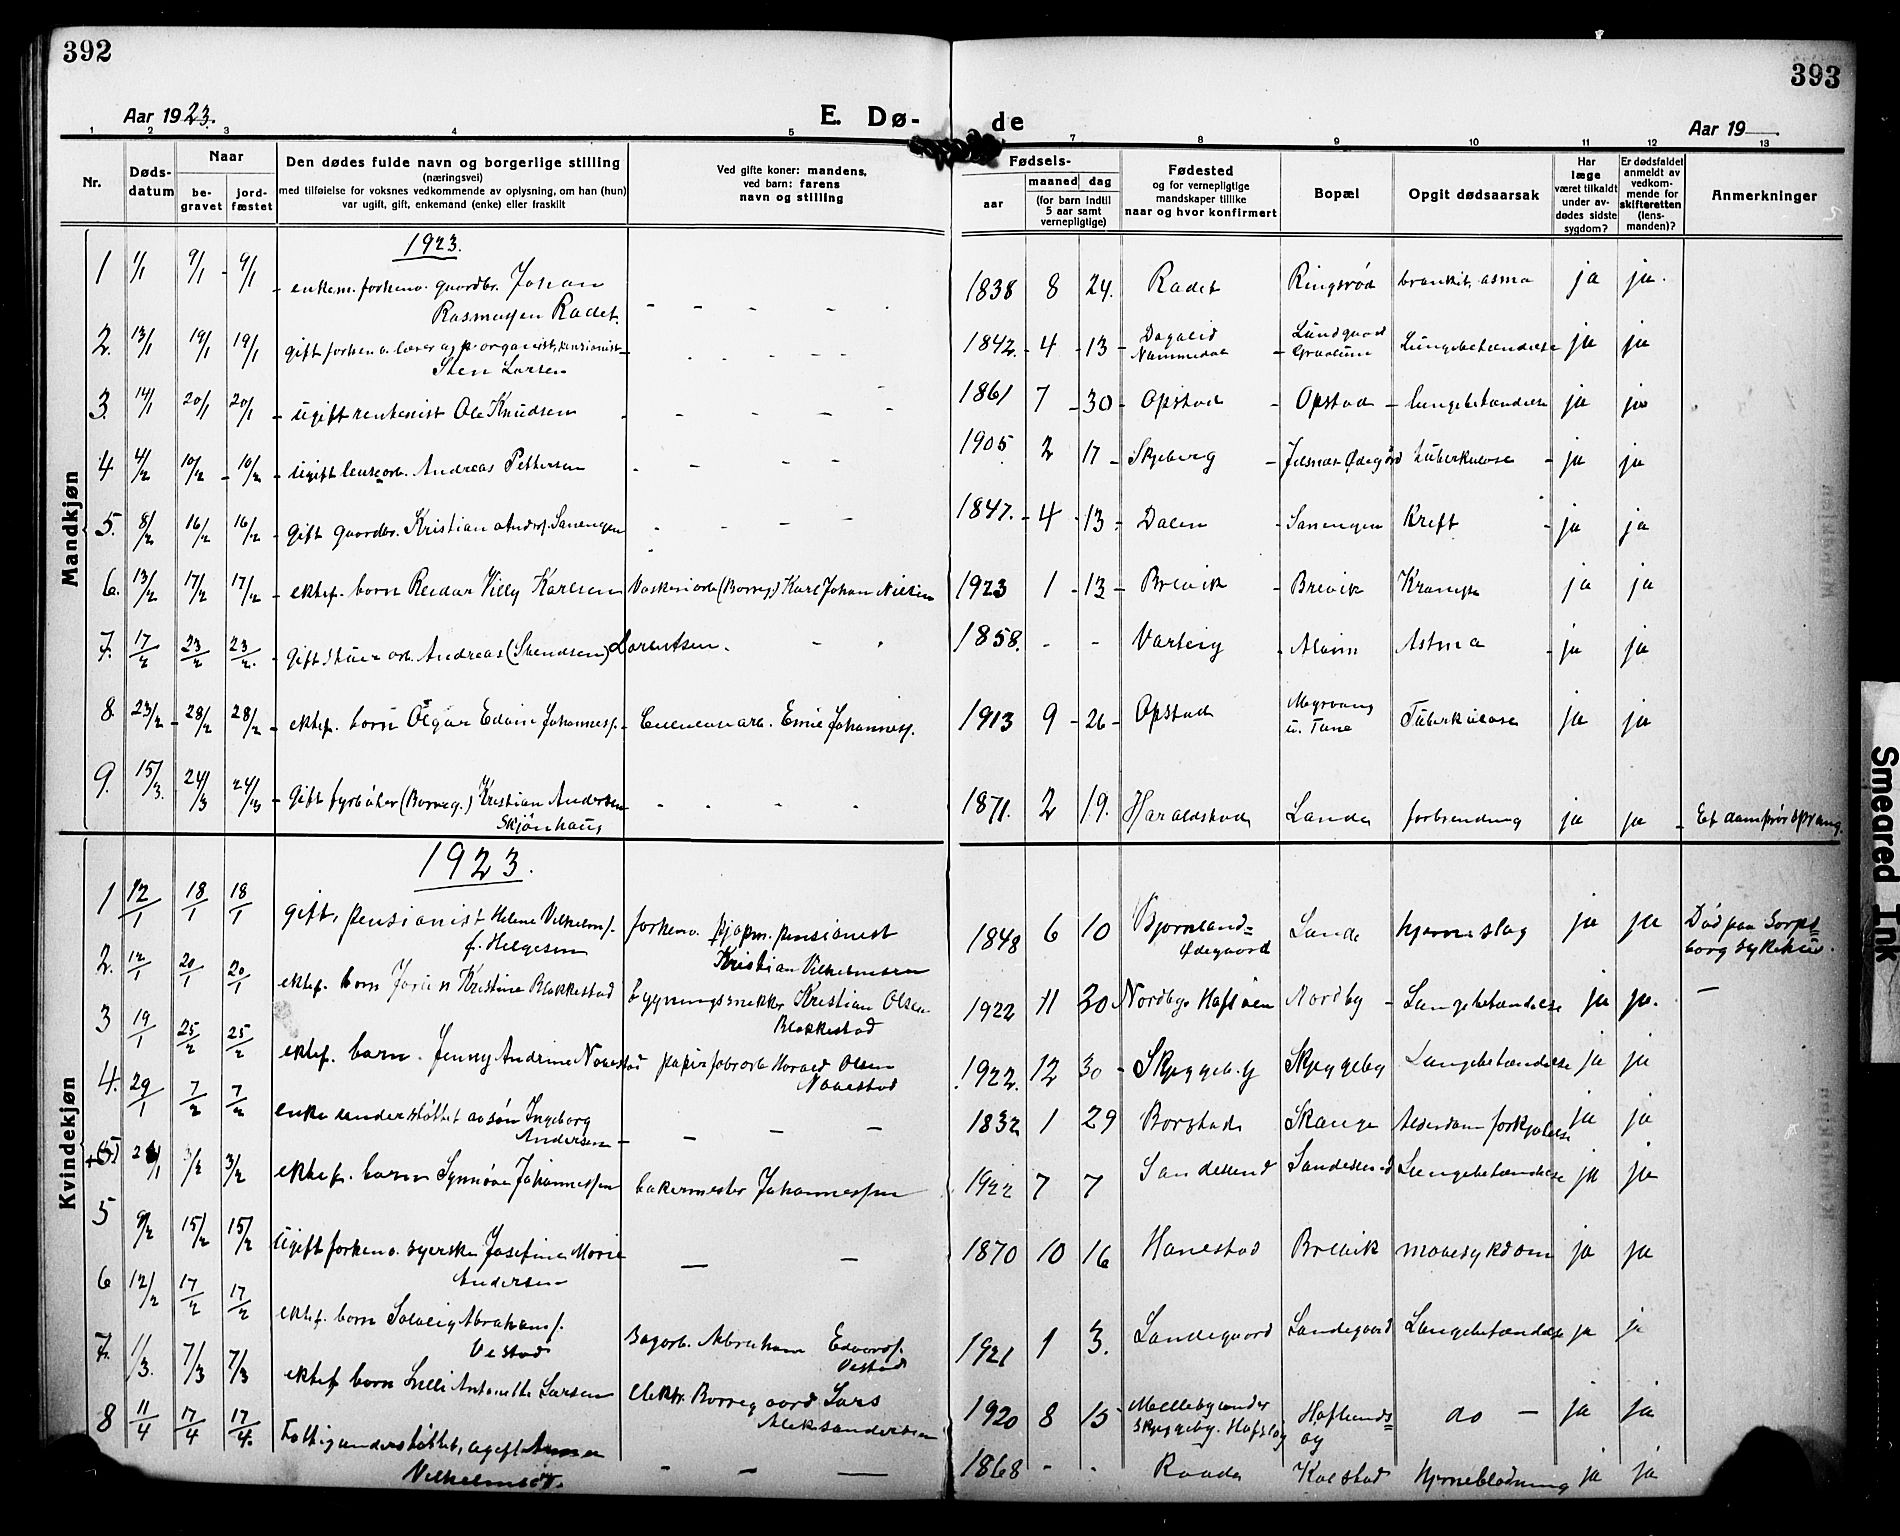 392
393
Aar 1923.
E. Dø-
de
Aar 19
1 2 3 4 5 7 8 9 10 11 12 13
Nr.
Døds-
datum
Naar
be-
gravet
jord-
fæstet
Den dødes fulde navn og borgerlige stilling
(næringsvei)
med tilføielse for voksnes vedkommende av oplysning, om han (hun)
var ugift, gift, enkemand (enke) eller fraskilt
Ved gifte koner: mandens,
ved barn: farens
navn og stilling
Fødsels-
aar
maaned
dag
(for barn indtil
5 aar samt
vernepligtige)
Fødested
og for vernepligtige
mandskaper tillike
naar og hvor konfirmert
Bopæl
Opgit dødsaarsak
Har
læge
været tilkaldt
under av-
dødes sidste
sygdom?
Er dødsfaldet
anmeldt av
vedkom-
mende for
skifteretten
(lens-
manden)?
Anmerkninger
Mandkjøn
1923.
1 1/1 9/1 - 9/1 - enkem. forhenv. gaardbr. Johan
Rasmussen Radet. 1838 8 24. Radet Ringsrød bronkit, asma ja ja.
2. 13/1 19/1 19/1 gift forhenv. lærer og organist, pensionist
Sten Larsen 1842 - 4 - 13 - Lundgaard
Lungebetændelse ja ja
3. 14/1 20/1 20/1 - ugift rentenist Ole Knudsen 1861 7 - 30 - Opstad - Opstad - lungebetændelse ja ja
4 4/2 10/2 - 10/2 - ugift Andreas Pettersen 1905 2 17 - Skjeberg - tuberkulose - ja ja
5. 8/2 16/2 16/2 - gift gaardbr. Kristian Andr. Sanengen 1847. - 4 - 13 - Dalen - Sanengen Kreft - ja ja
6. 13/2 17/2 17/2 - ektef. barn Reidar Villy Karlsen Vaskeriarb (Borreg.) Karl Johan Nielsen 1923 1 - 13 - Brevik - Brevik Krampe ja ja
7. 17/2 23/2 23/2. gift Andreas (Svendsen) Lorentsen. 1858. - - Varteig - Alvim Astma - ja ja
8. 23/2 - 28/2 28/2 - ektef. barn Edvin Johanness. - Emil Johanness. 1913 9 - 26 - Opstad
u. Tune Tuberkulose ja ja
9. 15/3. 24/3 24/3 - gift fyrbøter (Borreg.) Kristian Andersen
Skjønhaug 1871. 2 19. Haraldstad Lande forbrending ja ja - Et damprør sprang.
Kvindekjøn
1923.
1 12/1 18/1 18/1 gift, pensionist Helene Vilhelms.
f. Helgesen forhenv. pensionist
Kristian Vilhelmsen 1848 6 10 Bjørnland=
Ødegaard Lande hjerneslag ja ja Død paa Sarps=
borg sykehus.
2. 12/1 20/1 20/1 ektef. barn Kristine Blakkestad bygningssnekker Kristian Olsen
Blakkestad 1922 11 30 Nordby Nordby - Lungebetændelse ja ja. —
3 19/1 25/2 25/2 ektef. barn. Jenny Andrine papirfabrarb. Olsen
1922. 12 30 - Skjeggeby Skjeggeby Lungebetændelse ja ja
4. 29/1 7/2 7/2 enke understøttet av søn Ingeborg
Andersen - - - - 1832 1 29 Borgstad Alderdom forkjølelse ja ja
3/2 3/2 ektef. barn Synnøve Johannessen bakermester Johannessen 1922 7 7 Sandesund Sandesund Lungebetændelse ja ja
5 9/2 15/2 15/2 ugift forhenv. syerske Josefine Marie
Andersen — — 1870 10 16 Hanestad Brevik mavesykdom ja ja
6 12/2 17/2 17/2 ektef. barn Solveig Abrahams.
Vestad Abraham Edvards.
Vestad 1921 1 3. Landegaard Landegaard Lungebetændelse ja ja
7. 11/3. 7/3 7/3 ektef. barn Lilli Antonette Larsen elektr. Borregaard Lars
Aleksandersen 1920 8 15
Skjeggeby. Hafslund=
do — ja ja
8 11/4 17/4 17/4. Fattigunderstøttet, ugift Anna
Vilhelmsdt. - - — 1868 - - Raade Kalstad Hjerneblødning ja ja
Smeared Ink